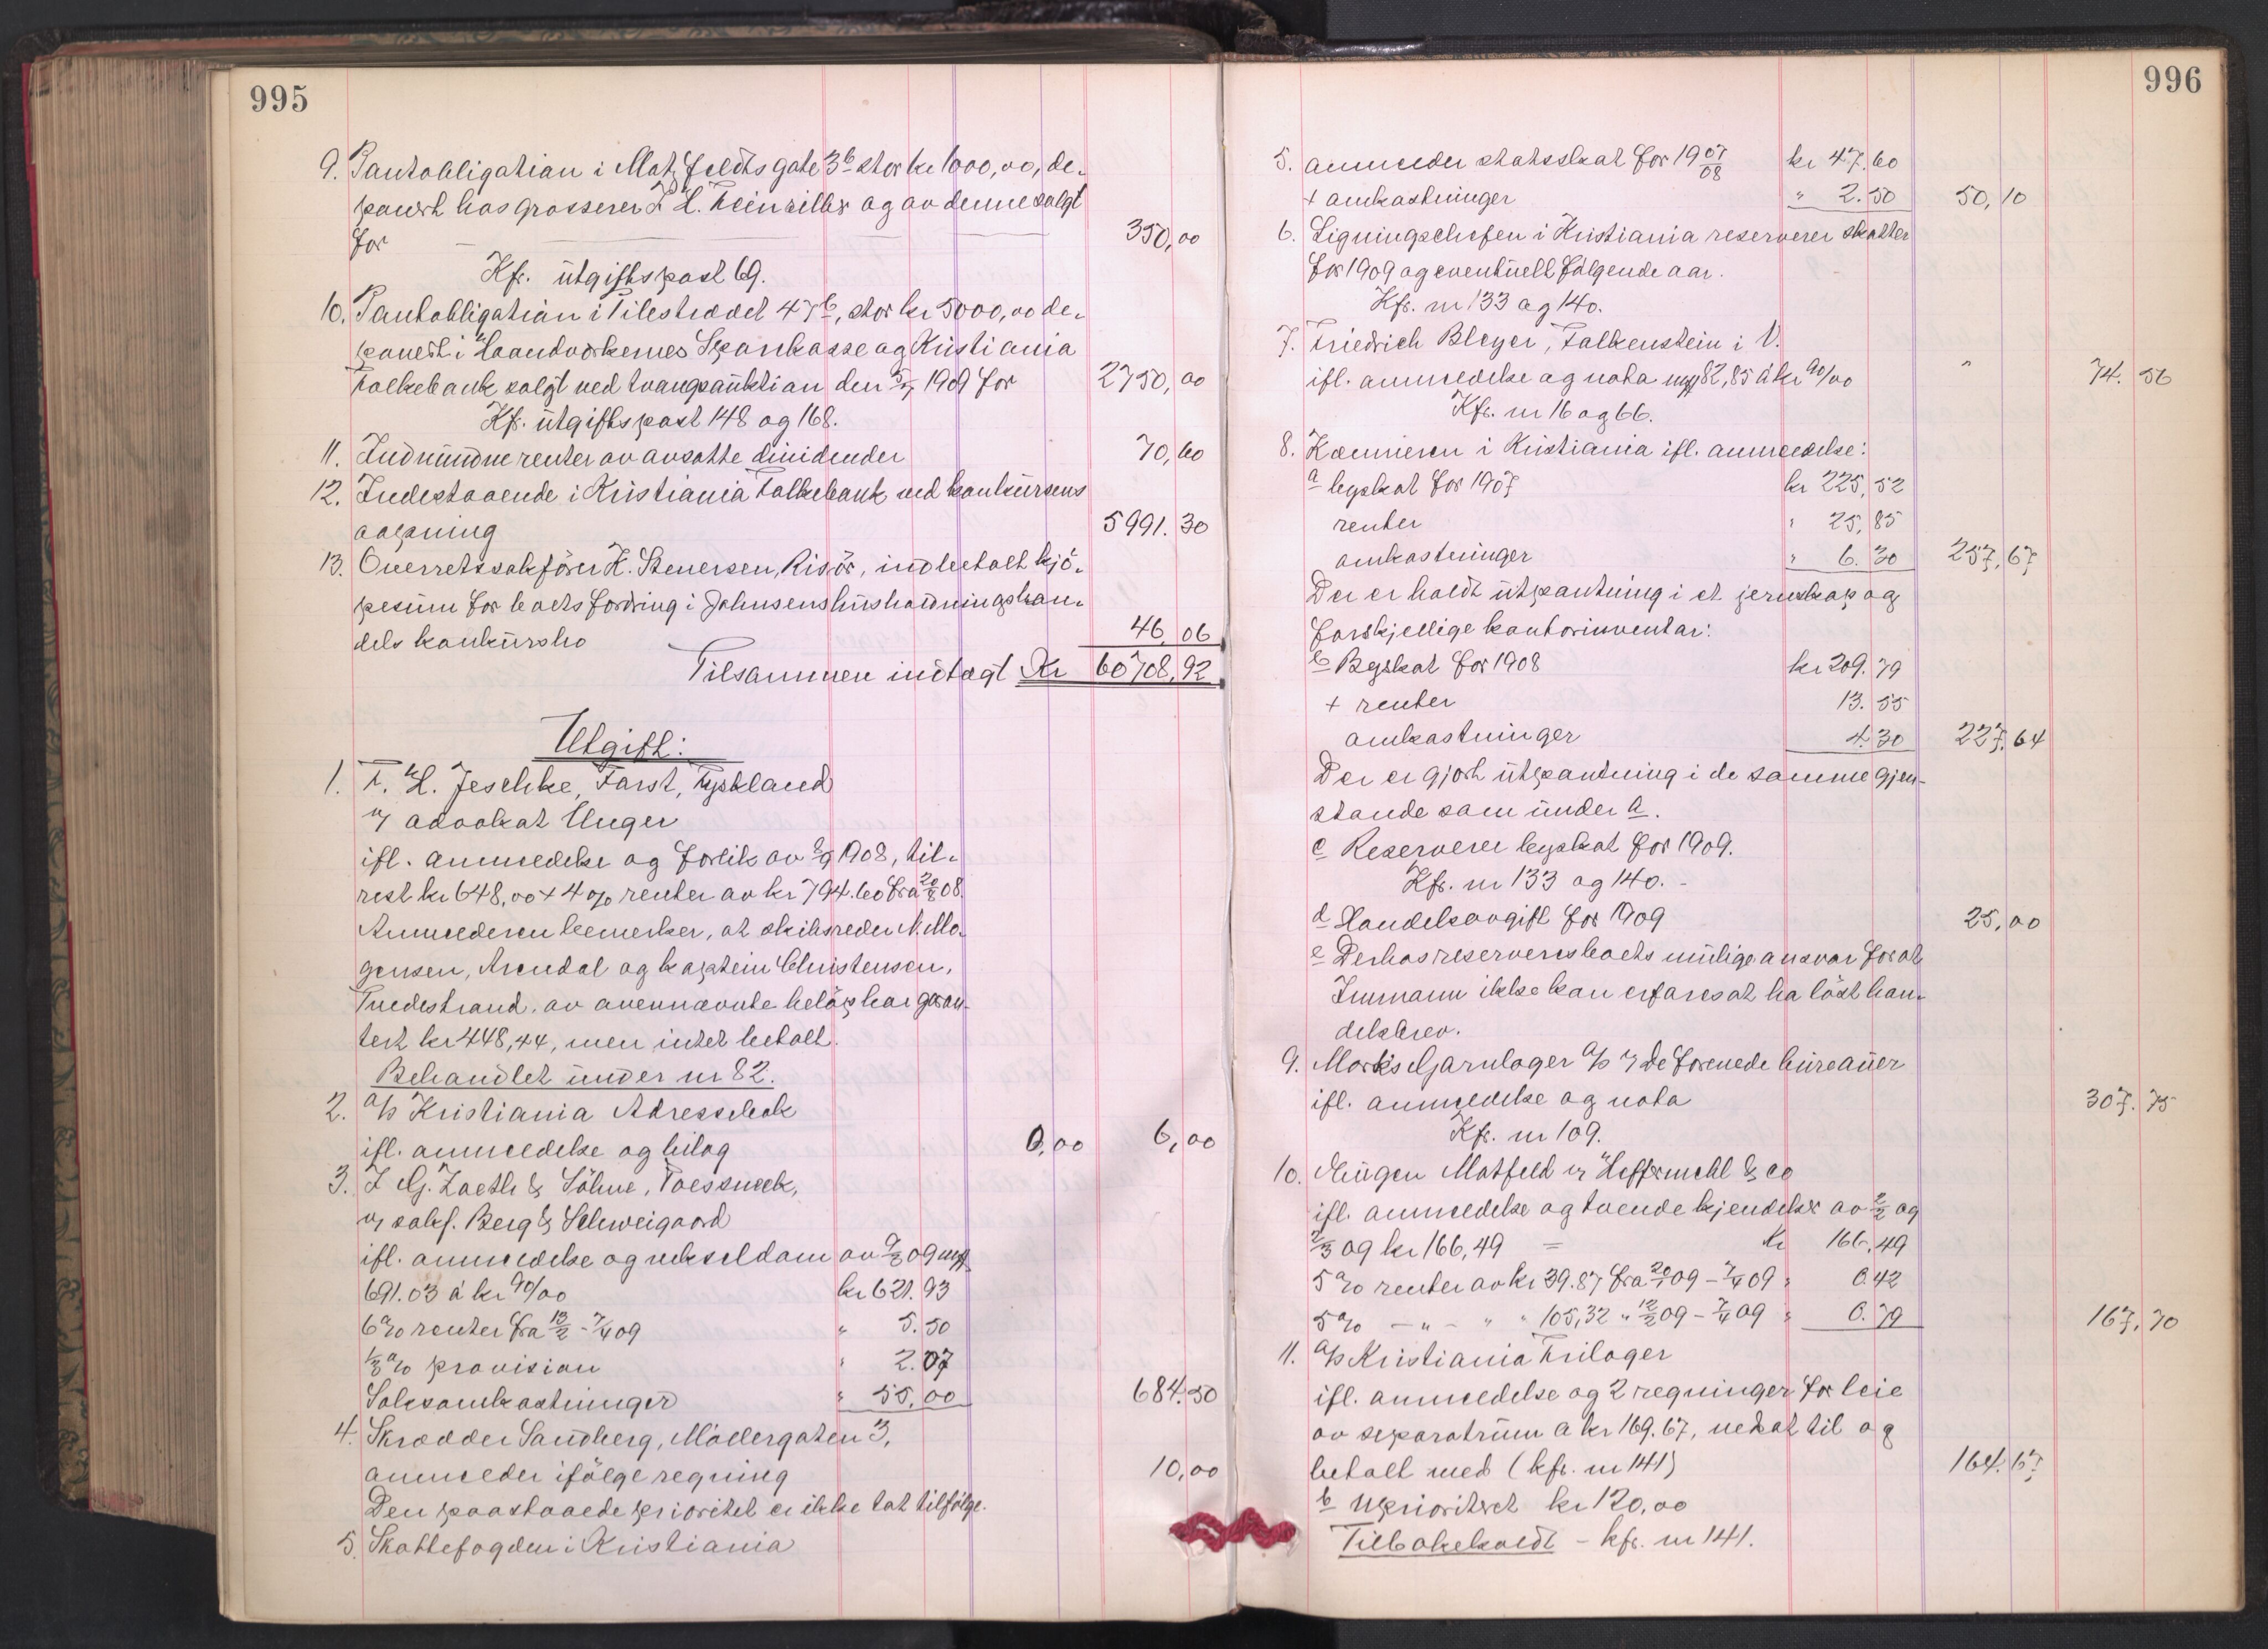 995
9. Pantobligation i Motzfeldtsgate 3b stor kr 1000,00, de-
ponert hos grosserer F H. og av denne solgt
for 350,00
Kfr. utgiftspost 69.
10. Pantobligation i Pilestrædet 47b, stor kr 5000,00 de-
ponert i Haandværkernes Sparekasse og Kristiania
Folkebank solgt ved tvangsauktion den 1909 for 2750,00
Kfr. utgiftspost 148 og 168.
11. Indvundne renter av avsatte dividender 70,60
12. Indestaaende i Kristiania Folkebank ved konkursens
aapning 5991.30
13. Overretssakfører K. Stenersen, Risør, indbetalt kjø-
pesum for boets fordring i Johnsens husholdningshan-
dels konkursbo 46,06
Tilsammen indtægt Kr 60708,92
Utgift:
1. F. H. Jeschke, Forst, Tyskland
v/ advokat Unger
ifl. anmeldelse og forlik av 8/9 1908, til-
rest kr 648,00 + 4 % renter av kr 794.60 fra 20/8 08.
Anmelderen bemerker, at skibsreder N. Mo-
gensen, Arendal og kaptein Christensen,
Tvedestrand, av ovennævnte beløp har garan-
tert kr 448,44, men intet betalt.
Behandlet under nr 82.
2. A/S Kristiania Adressebok
ifl. anmeldelse og bilag 0,00 6,00
3. I G. Zoeth & Söhne, Poessneck,
v/ sakf. Berg & Schweigaard
ifl. anmeldelse og vekseldom av 9/3 09 mff
691.03 á kr 90/00 kr 621.93
6 % renter fra 13/2 - 7/4 09 " 5.50
1/3 % provision " 2.07
Saksomkostninger " 55,00 684.50
4. Skrædder Sandberg, Møllergaten 3,
anmelder ifølge regning 10,00
Den paastaaede prioritet er ikke tat tilfølge.
5. Skattefogden i Kristiania
996
5. anmelder statsskat for 19 07/08 kr 47.60
+ omkostninger " 2.50 50,10
6. Ligningschefen i Kristiania reserverer skatter
for 1909 og eventuelt følgende aar.
Kfr. nr 133 og 140.
7. Friedrich Bleyer, Falkenstein i V.
ifl. anmeldelse og nota mff 82,85 á kr 90/00 " 74.56
Kfr. nr 16 og 66.
8. Kæmneren i Kristiania ifl. anmeldelse:
a byskat for 1907 kr 225,52
renter " 25,85
omkostninger " 6.30 257,67
Der er holdt utpantning i et jernskap og
forskjellige kontorinventar:
b Byskat for 1908 kr 209.79
+ renter 13.55
omkostninger 4.30 227,64
Der er gjort utpantning i de samme gjen-
stande som under a.
c Reserverer byskat for 1909.
Kfr. nr 133 og 140. -
d Handelsavgift for 1909 25,00
e Derhos reserveres boets mulige ansvar for at
Immann ikke kan erfares at ha løst han-
delsbrev.
9. Mork's Garnlager A/S v/ De forenede bureauer
ifl. anmeldelse og nota 307.75
Kfr. nr 109.
10. Eugen Matfeld v/ Heffermehl & Co
ifl. anmeldelse og tvende kjendelser av 2/2 og
2/3 09 kr 166,49 = kr 166,49
5 % renter av kr 39.87 fra 20/1 09 - 7/4 09 " 0.42
5 % - " - " " 105,32 " 12/2 09 - 7/4 09 " 0.79 167,70
11. A/S Kristiania Frilager
ifl. anmeldelse og 2 regninger for leie
av separatrum a kr 169.67, nedsat til og
betalt med (kfr. nr 141) 164.67
b uprioritert kr 120,00
Tilbakeholdt - kfr. nr 141.